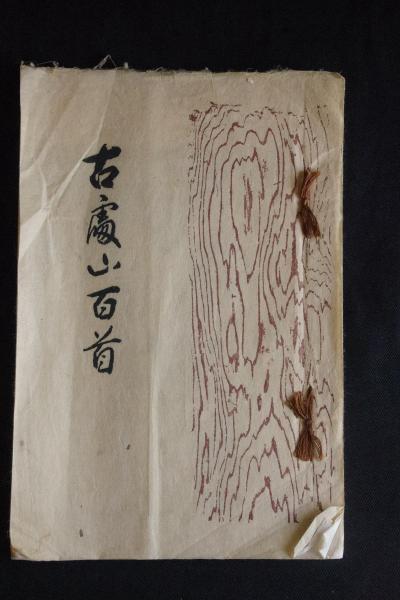 古處山百首